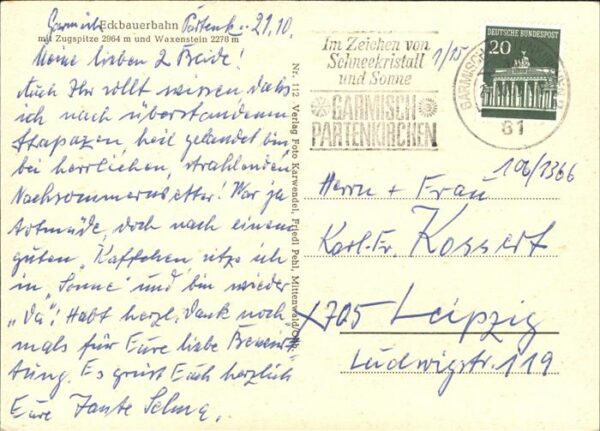 Eckbauerbahn
mit Zugspitze 2964 m und Waxenstein 2278 m
Garmisch Partenk. 21.10.
Meine lieben 2 Beide!
Auch Ihr sollt wissen daß
ich nach überstandenen
Strapazen, heil gelandet bin
bei herrlichen, strahlenden
Nachsommerwetter! War ja
totmüde, doch nach einem
guten "Kaffchen" sitze ich
in "Sonne" und bin wieder
"da"! Habt herzl. Dank noch
mals für Eure liebe Bewirt
tung. Es grüßt Euch herzlich
Eure Tante Selma.
Nr. 112 Verlag Foto Karwendel, Friedl Pehl, Mittenwald/Obb.
Im Zeichen von
Schneekristall
und Sonne
GARMISCH
PARTENKIRCHEN
1/15
DEUTSCHE BUNDESPOST
20
GARMISCH
81
106/1366
Herrn + Frau
Karl-Fr. Kossert
X705 Leipzig
Ludwigstr. 119